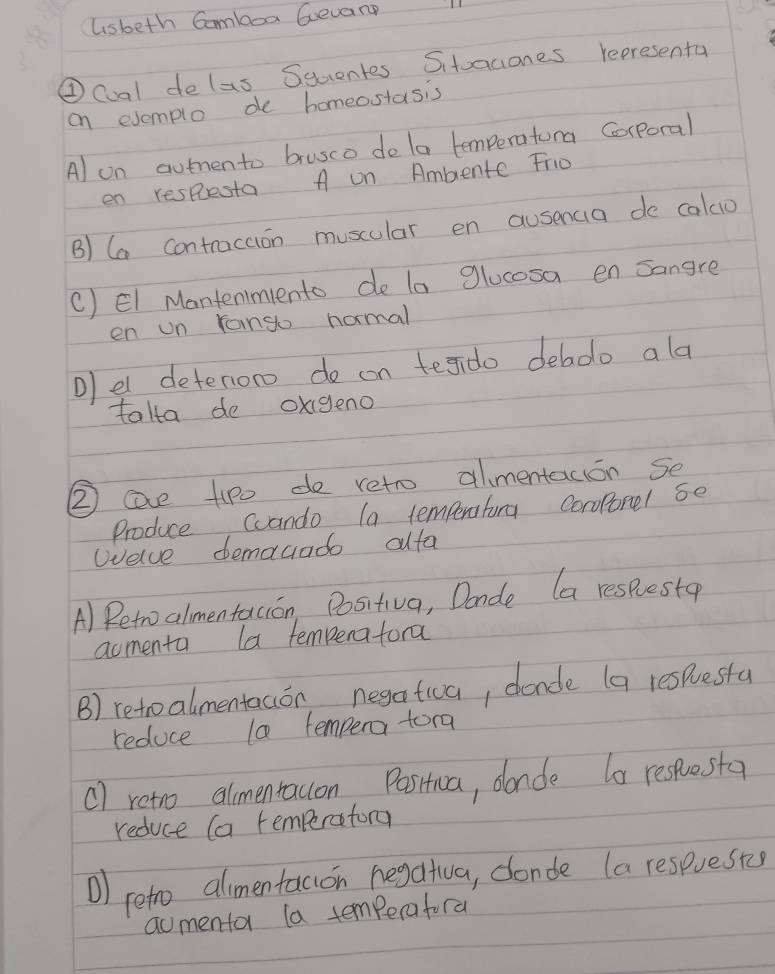 Lisbeth Gamboa Guevara
① Cual de las Siguientes Situaciones representa
un ejemplo de homeostasis
A) Un aumento brusco de la temperatura Corporal
en respuesta A un Ambiente Frio
B) La contracción muscular en ausencia de calcio
C) El Mantenimiento de la glucosa en sangre
en un rango normal
D) el deterioro de un tejido debido ala
falta de oxigeno
② Que tipo de retro alimentación se
Produce Cuando la temperatura Coroporal se
vuelve demaciado alta
A) Retroalimentación Positiva, Donde la respuesta
aumenta la temperatora
B) retroalimentación negativa, donde la respuesta
reduce la temperatora
C) retro alimentacion Positiva, donde la respuesta
reduce la temperatora
D) retro alimentación negativa, donde la respuesta
aumenta la temperatura